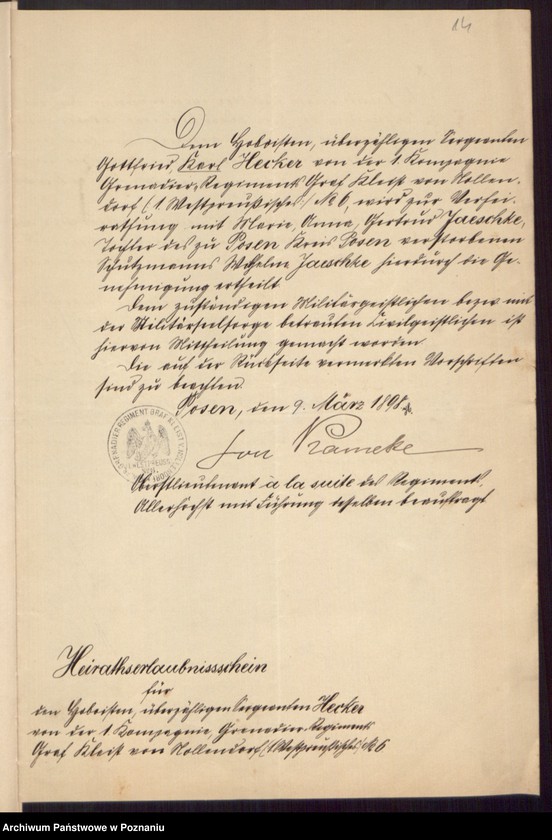 14
Dem Hoboisten, überzähligen Sergeanten
Gottfried, Karl Hecker von der 1 Kompagnie
Grenadier-Regiments Graf Kleist von Nollen-
dorf (1 Westpreußisches) № 6, wird zur Verhei-
rathung mit Marie, Anna, Gertrud Jaeschke,
Tochter des zu Posen Kreis Posen verstorbenen
Schutzmanns Wilhelm Jaeschke hierdurch die Ge-
nehmigung ertheilt.
Dem zuständigen Militärgeistlichen bezw mit
der Militärseelsorge betrauten Civilgeistlichen ist
hiervon Mittheilung gemacht worden
Die auf der Rückseite vermerkten Vorschriften
sind zu beachten.
Posen, den 9. März 1898.
von Kameke
Oberstlieutenant à la suite des Regiments,
Allerhöchst mit Führung desselben beauftragt
Heirathserlaubnissschein
für
den Hoboisten, überzähligen Sergeanten Hecker
von der 1 Kompagnie, Grenadier-Regiments
Graf Kleist von Nollendorf (1 Westpreußisches) № 6
Archiwum Państwowe w Poznaniu